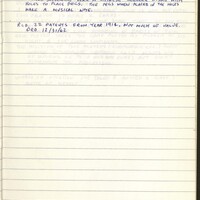 HOLES TO PLACE PEGS. THE PEGS WHEN PLACED IN THE HOLES
MAKE A MUSICAL NOTE.
R.O. 25 PATENTS FROM YEAR 1912, NOT MUCH OF VALUE.
12/31/62